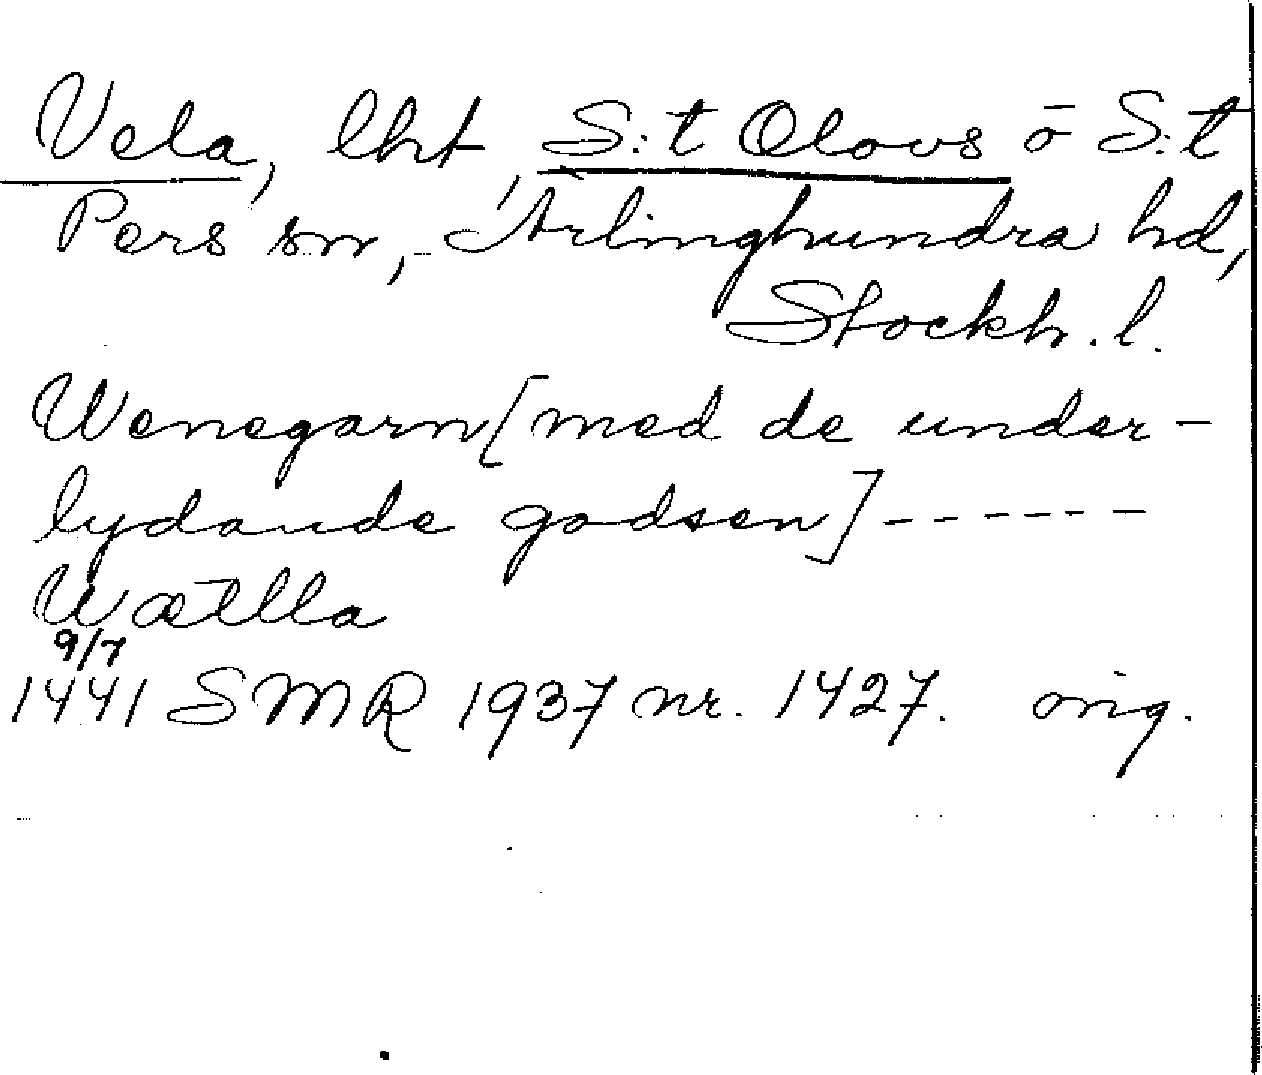 Vela, lht, S:t Olovs o S:t
Pers sn, Ärlinghundra hd,
Stockh. l.
Wenegarn [med de under-
lydande godsen] ------
Wætlla
9/7
1441 SMR 1937 nr. 1427. orig.